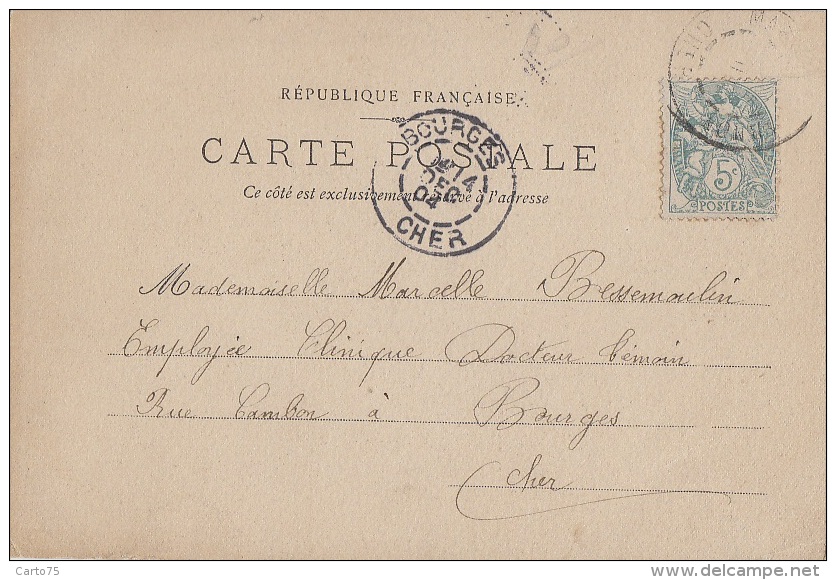 RÉPUBLIQUE FRANÇAISE
CARTE POSTALE
Ce côté est exclusivement réservé à l'adresse
BOURGES
14
DEC
04
CHER
5c
POSTES
Mademoiselle Marcelle Bessemoulin
Employée Clinique Docteur Témoin
Rue Cambon à Bourges
Cher
Carto75
www.delcampe.net